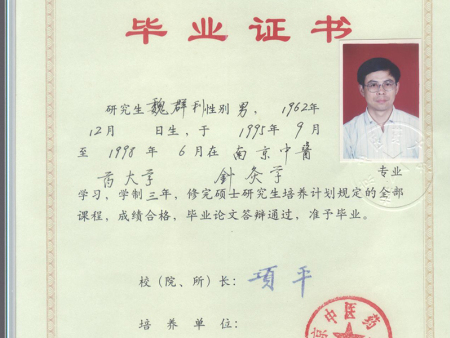 毕业证书
研究生魏群利性别男，1962年
12月 日生，于 1995年 9月
至 1998年 6月在 南京中醫
药大学 針灸学 专业
学习，学制三年，修完硕士研究生培养计划规定的全部
课程，成绩合格，毕业论文答辩通过，准予毕业。
校（院、所）长：项平
培养单位：
京中医药